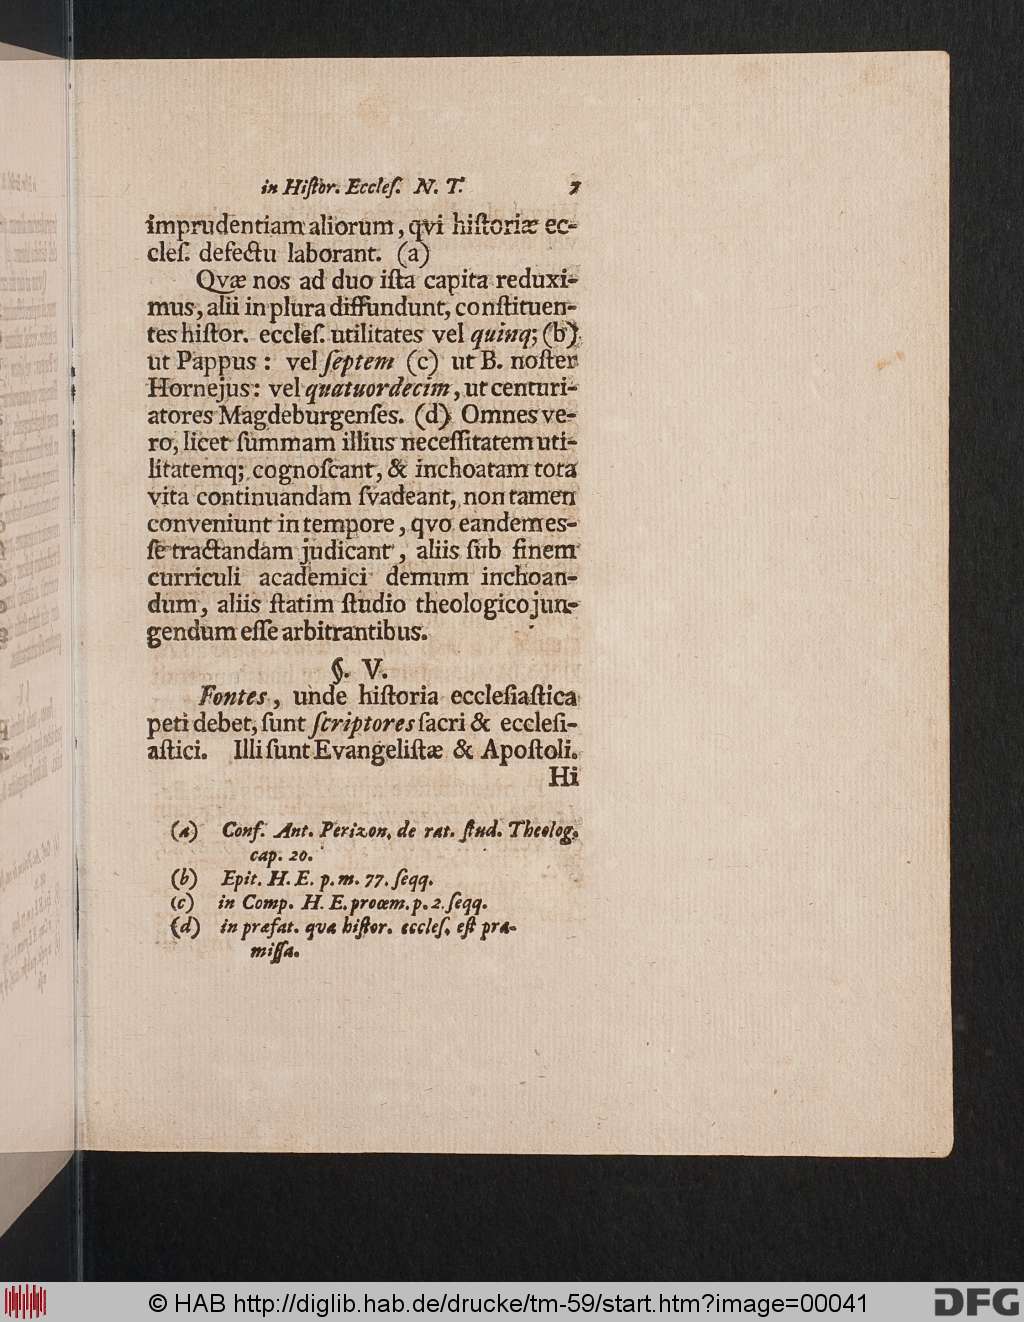 in Hiſtor. Eccleſ. N. T. 7
imprudentiam aliorum, qvi hiſtoriæ ec-
cleſ. defectu laborant. (a)
Qvæ nos ad duo iſta capita reduxi-
mus, alii in plura diffundunt, conſtituen-
tes hiſtor. eccleſ. utilitates vel quinq; (b)
ut Pappus: vel ſeptem (c) ut B. noſter
Hornejus: vel quatuordecim, ut centuri-
atores Magdeburgenſes. (d) Omnes ve-
ro, licet ſummam illius neceſſitatem uti-
litatemq; cognoſcant, & inchoatam tota
vita continuandam ſvadeant, non tamen
conveniunt in tempore, qvo eandem es-
ſe tractandam judicant, aliis ſub finem
curriculi academici demum inchoan-
dum, aliis ſtatim ſtudio theologico jun-
gendum eſſe arbitrantibus.
§. V.
Fontes, unde hiſtoria eccleſiaſtica
peti debet, ſunt ſcriptores ſacri & eccleſi-
aſtici. Illi ſunt Evangeliſtæ & Apoſtoli.
Hi
(a) Conf. Ant. Perizon. de rat. ſtud. Theolog.
cap. 20.
(b) Epit. H. E. p. m. 77. ſeqq.
(c) in Comp. H. E. proœm. p. 2. ſeqq.
(d) in præfat. qvæ hiſtor. eccleſ. eſt præ-
miſſa.
© HAB http://diglib.hab.de/drucke/tm-59/start.htm?image=00041
DFG